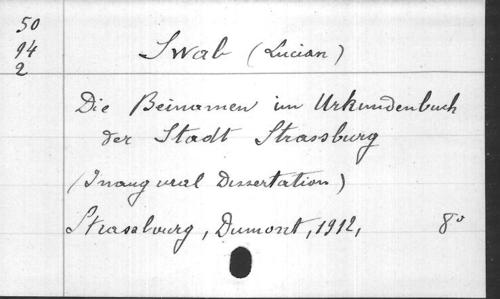 50
94
2
Swab (Lucian)
Die Beinamen im Urkundenbuch
der Stadt Strassburg
(Inaugural Dissertation)
Strassburg, Dumont, 1912, 8°